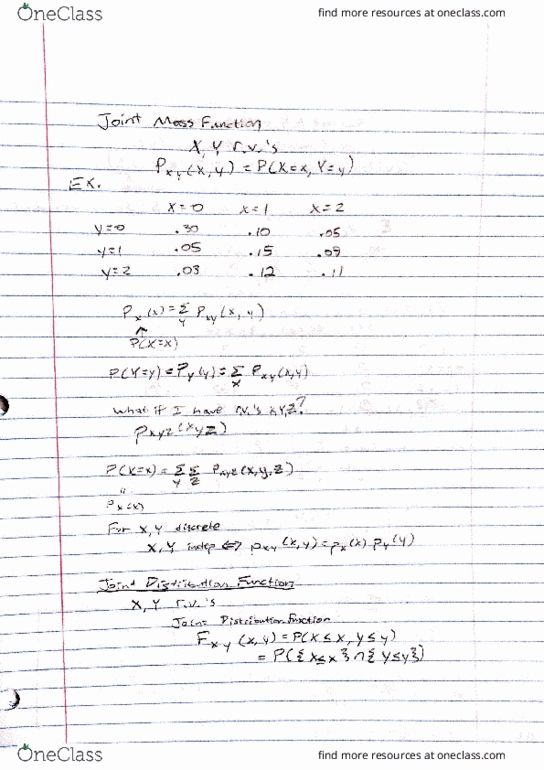 OneClass
find more resources at oneclass.com
Joint Mass Function
X, Y r.v.'s
P_{XY}(x,y) = P(X=x, Y=y)
Ex.
X=0 X=1 X=2
y=0 .30 .10 .05
y=1 .05 .15 .09
y=2 .03 .12 .11
P_X(x) = Σ_y P_{XY}(x,y)
↑
P(X=x)
P(Y=y) = P_Y(y) = Σ_x P_{XY}(x,y)
What if I have r.v.'s X,Y,Z?
P_{XYZ}(x y z)
P(X=x) = Σ_y Σ_z P_{XYZ}(x,y,z)
"
P_X(x)
For X, Y discrete
X, Y indep ⟺ p_{XY}(x,y) = p_X(x) · p_Y(y)
Joint Distribution Functions
X, Y r.v.'s
Joint Distribution Function
F_{XY}(x,y) = P(X ≤ x, Y ≤ y)
= P({X ≤ x} ∩ {Y ≤ y})
OneClass
find more resources at oneclass.com